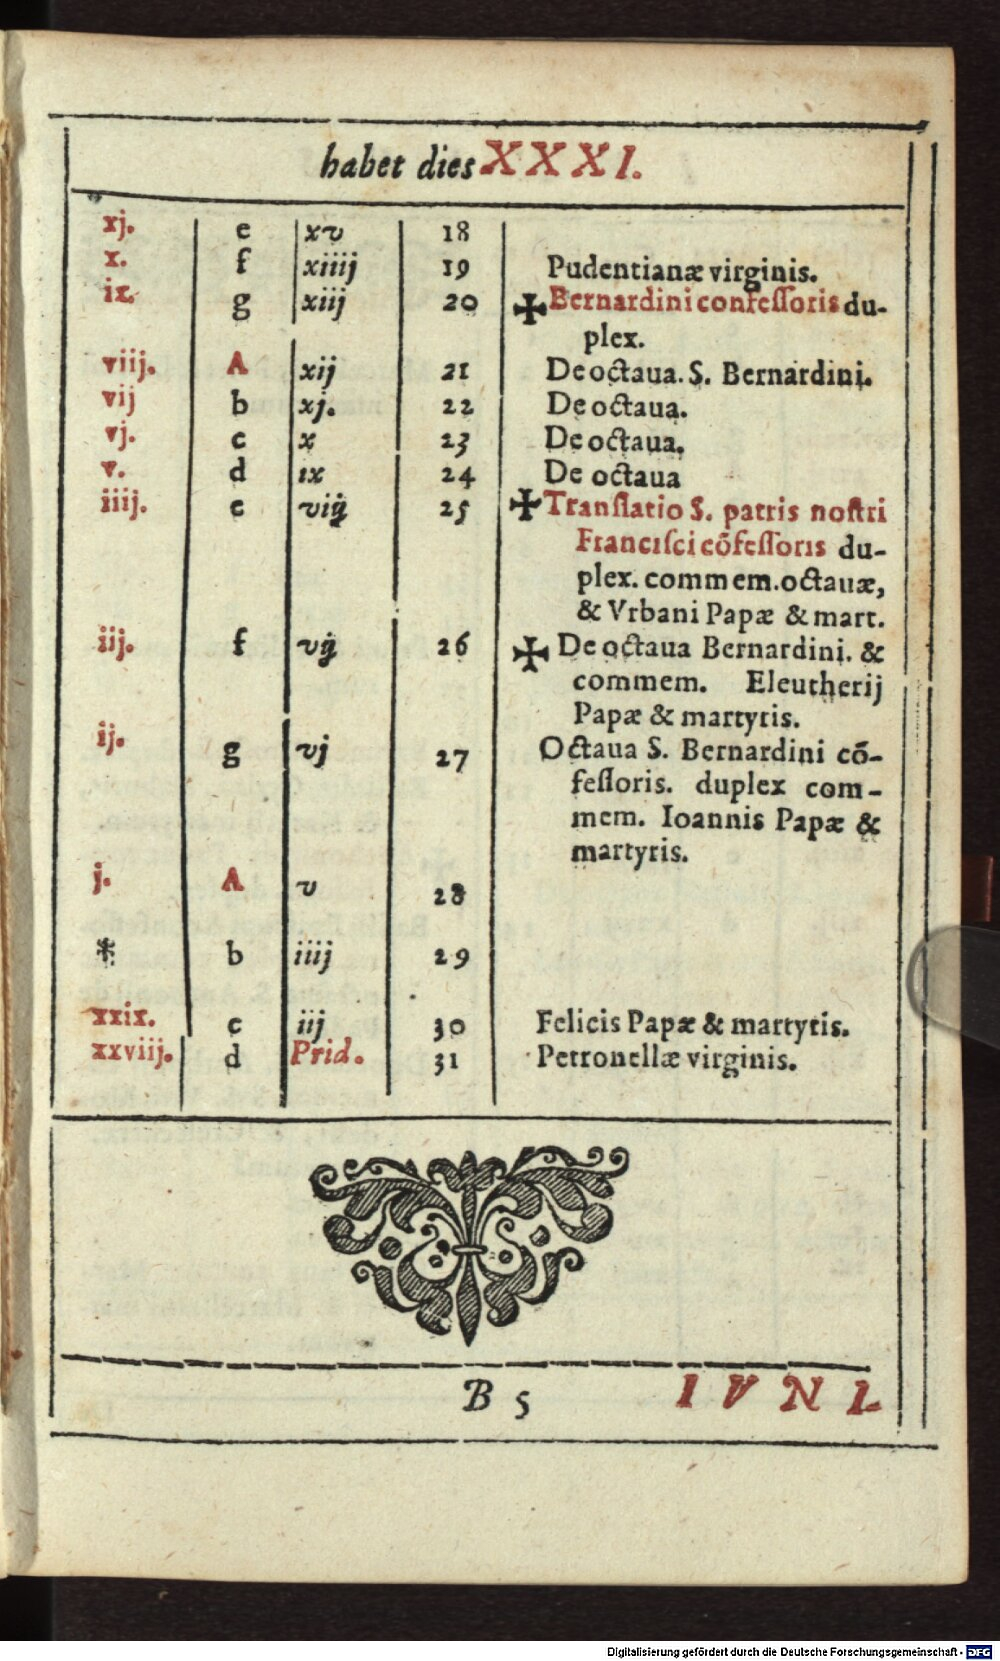 habet dies XXXI.
xj. e xv 18
x. f xiiij 19 Pudentianæ virginis.
ix. g xiij 20 ✠ Bernardini confeſſoris du-
plex.
viij. A xij 21 De octaua. S. Bernardini.
vij b xj. 22 De octaua.
vj. c x 23 De octaua.
v. d ix 24 De octaua
iiij. e viij 25 ✠ Tranſlatio S. patris noſtri
Franciſci cõfeſſoris du-
plex. commem. octauæ,
& Vrbani Papæ & mart.
iij. f vij 26 ✠ De octaua Bernardini. &
commem. Eleutherij
Papæ & martyris.
ij. g vj 27 Octaua S. Bernardini cõ-
feſſoris. duplex com-
mem. Ioannis Papæ &
martyris.
j. A v 28
* b iiij 29
xxix. c iij 30 Felicis Papæ & martyris.
xxviij. d Prid. 31 Petronellæ virginis.
B 5 IVNI.
Digitalisierung gefördert durch die Deutsche Forschungsgemeinschaft - DFG